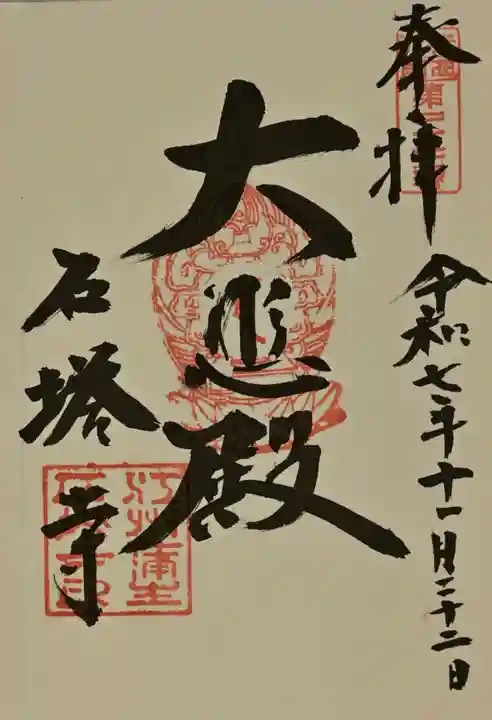 奉拝
令和七年十一月二十二日
大悲殿
石塔寺
江州蒲生
石塔寺印